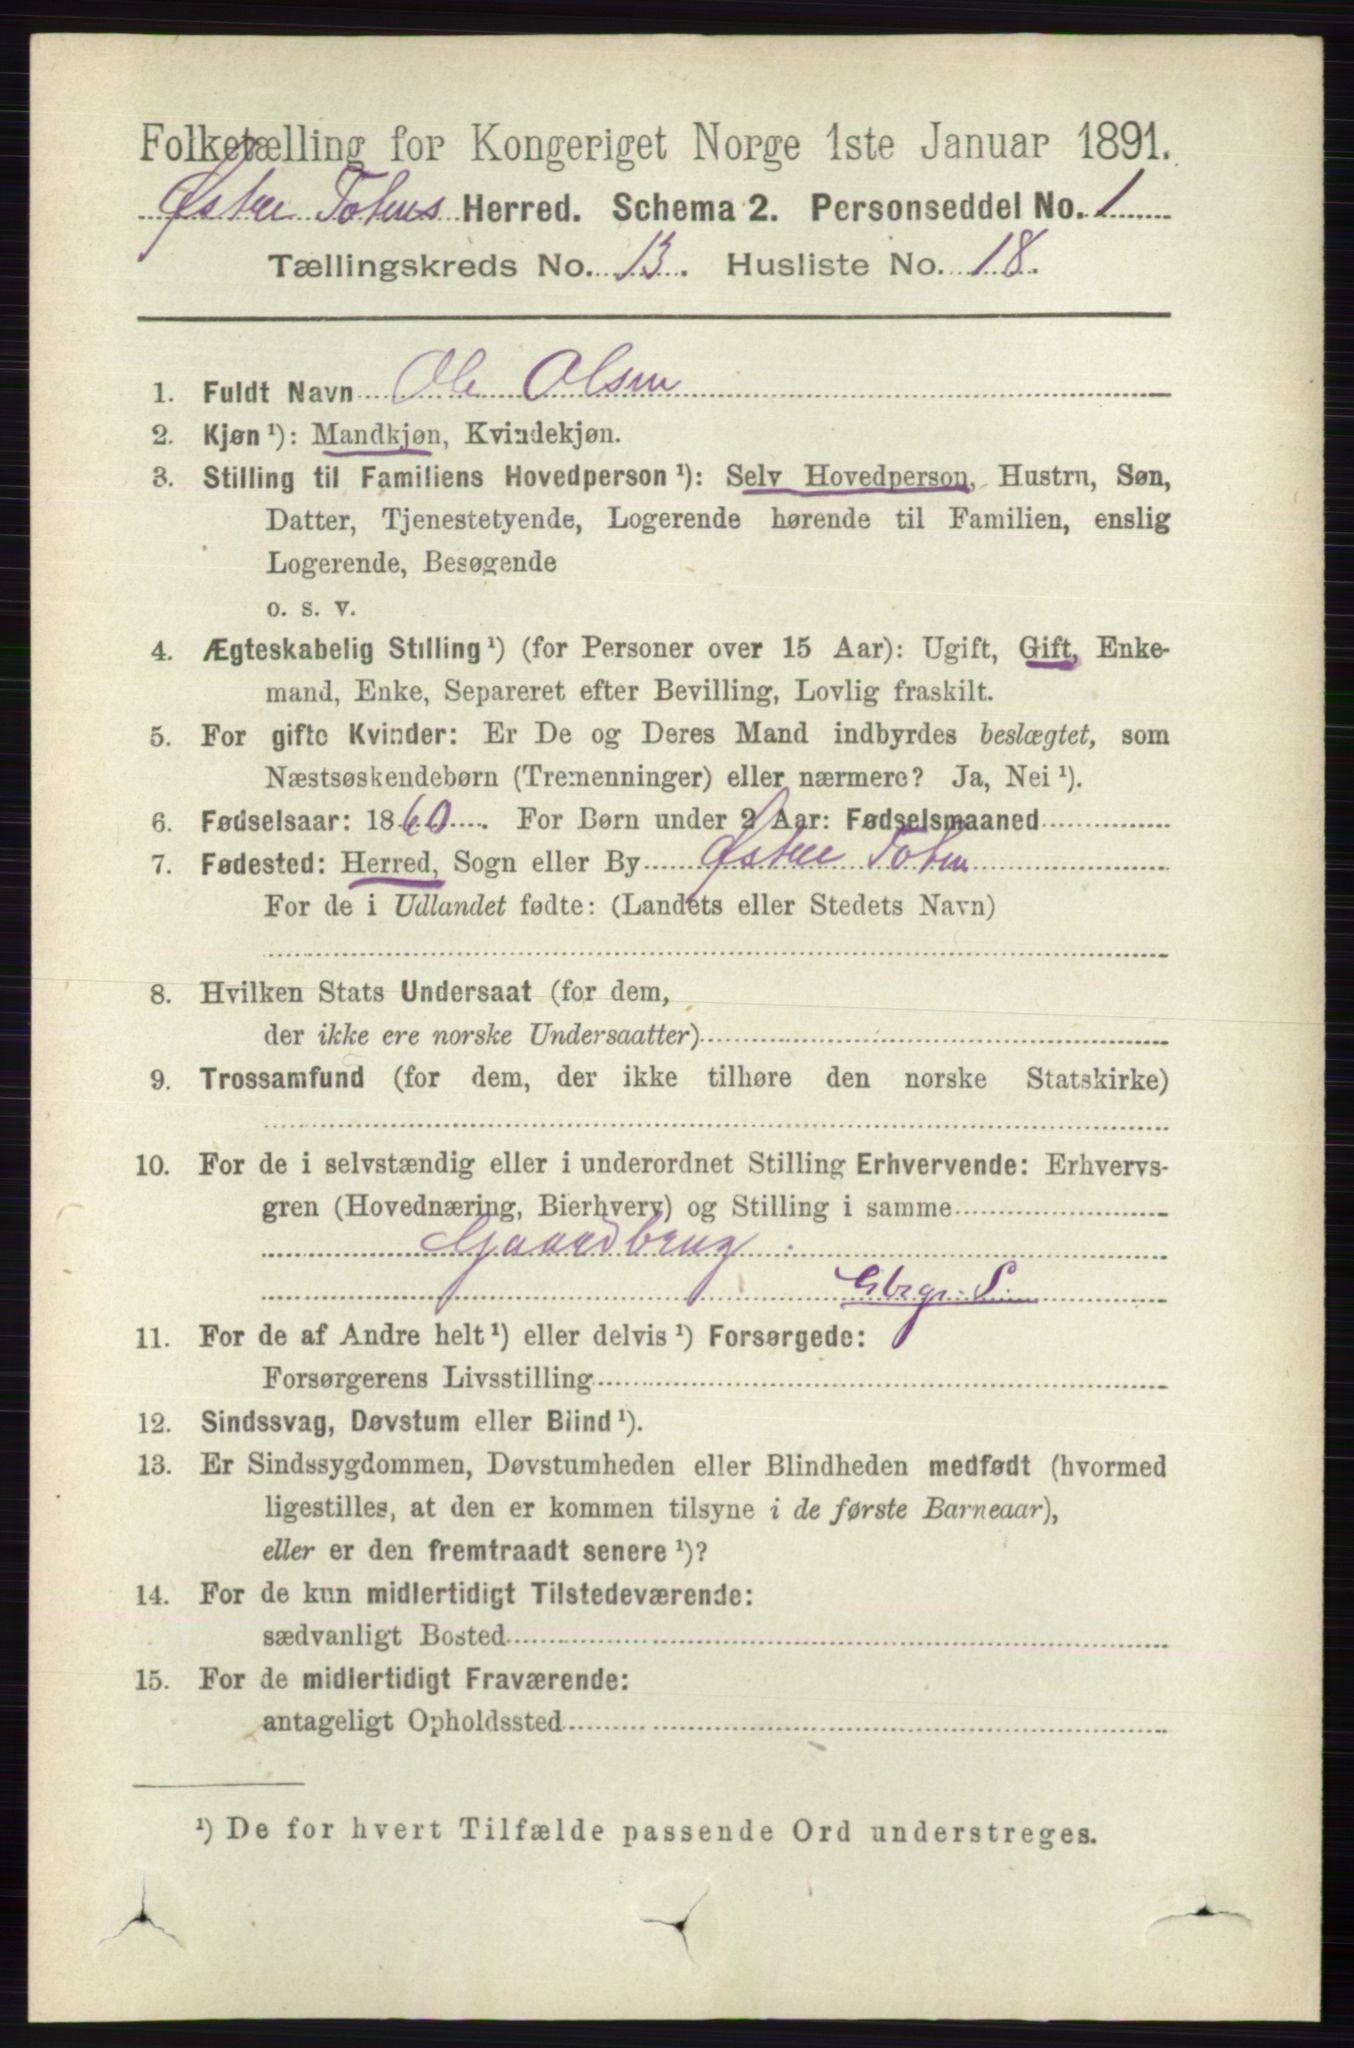 Folketælling for Kongeriget Norge 1ste Januar 1891.
Østre Totens Herred. Schema 2. Personseddel No. 1
Tællingskreds No. 13. Husliste No. 18.
1. Fuldt Navn Ole Olsen
2. Kjøn ¹): Mandkjøn, Kvindekjøn.
3. Stilling til Familiens Hovedperson ¹): Selv Hovedperson, Hustru, Søn,
Datter, Tjenestetyende, Logerende hørende til Familien, enslig
Logerende, Besøgende
o. s. v.
4. Ægteskabelig Stilling ¹) (for Personer over 15 Aar): Ugift, Gift, Enke-
mand, Enke, Separeret efter Bevilling, Lovlig fraskilt.
5. For gifte Kvinder: Er De og Deres Mand indbyrdes beslægtet, som
Næstsøskendebørn (Tremenninger) eller nærmere? Ja, Nei ¹).
6. Fødselsaar: 1860. For Børn under 2 Aar: Fødselsmaaned
7. Fødested: Herred, Sogn eller By Østre Toten
For de i Udlandet fødte: (Landets eller Stedets Navn)
8. Hvilken Stats Undersaat (for dem,
der ikke ere norske Undersaatter)
9. Trossamfund (for dem, der ikke tilhøre den norske Statskirke)
10. For de i selvstændig eller i underordnet Stilling Erhvervende: Erhvervs-
gren (Hovednæring, Bierhverv) og Stilling i samme
Gaardbrug.
Gbrgr. S.
11. For de af Andre helt ¹) eller delvis ¹) Forsørgede:
Forsørgerens Livsstilling
12. Sindssvag, Døvstum eller Blind ¹).
13. Er Sindssygdommen, Døvstumheden eller Blindheden medfødt (hvormed
ligestilles, at den er kommen tilsyne i de første Barneaar),
eller er den fremtraadt senere ¹)?
14. For de kun midlertidigt Tilstedeværende:
sædvanligt Bosted
15. For de midlertidigt Fraværende:
antageligt Opholdssted
¹) De for hvert Tilfælde passende Ord understreges.